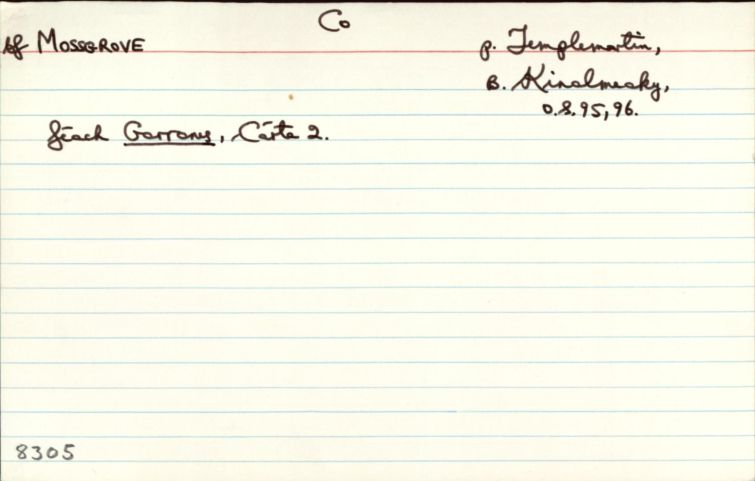 Co
bf MOSSGROVE
p. Templemartin,
B. Kinalmeaky,
O.S. 95, 96.
féach Garranes, Cárta 2.
8305